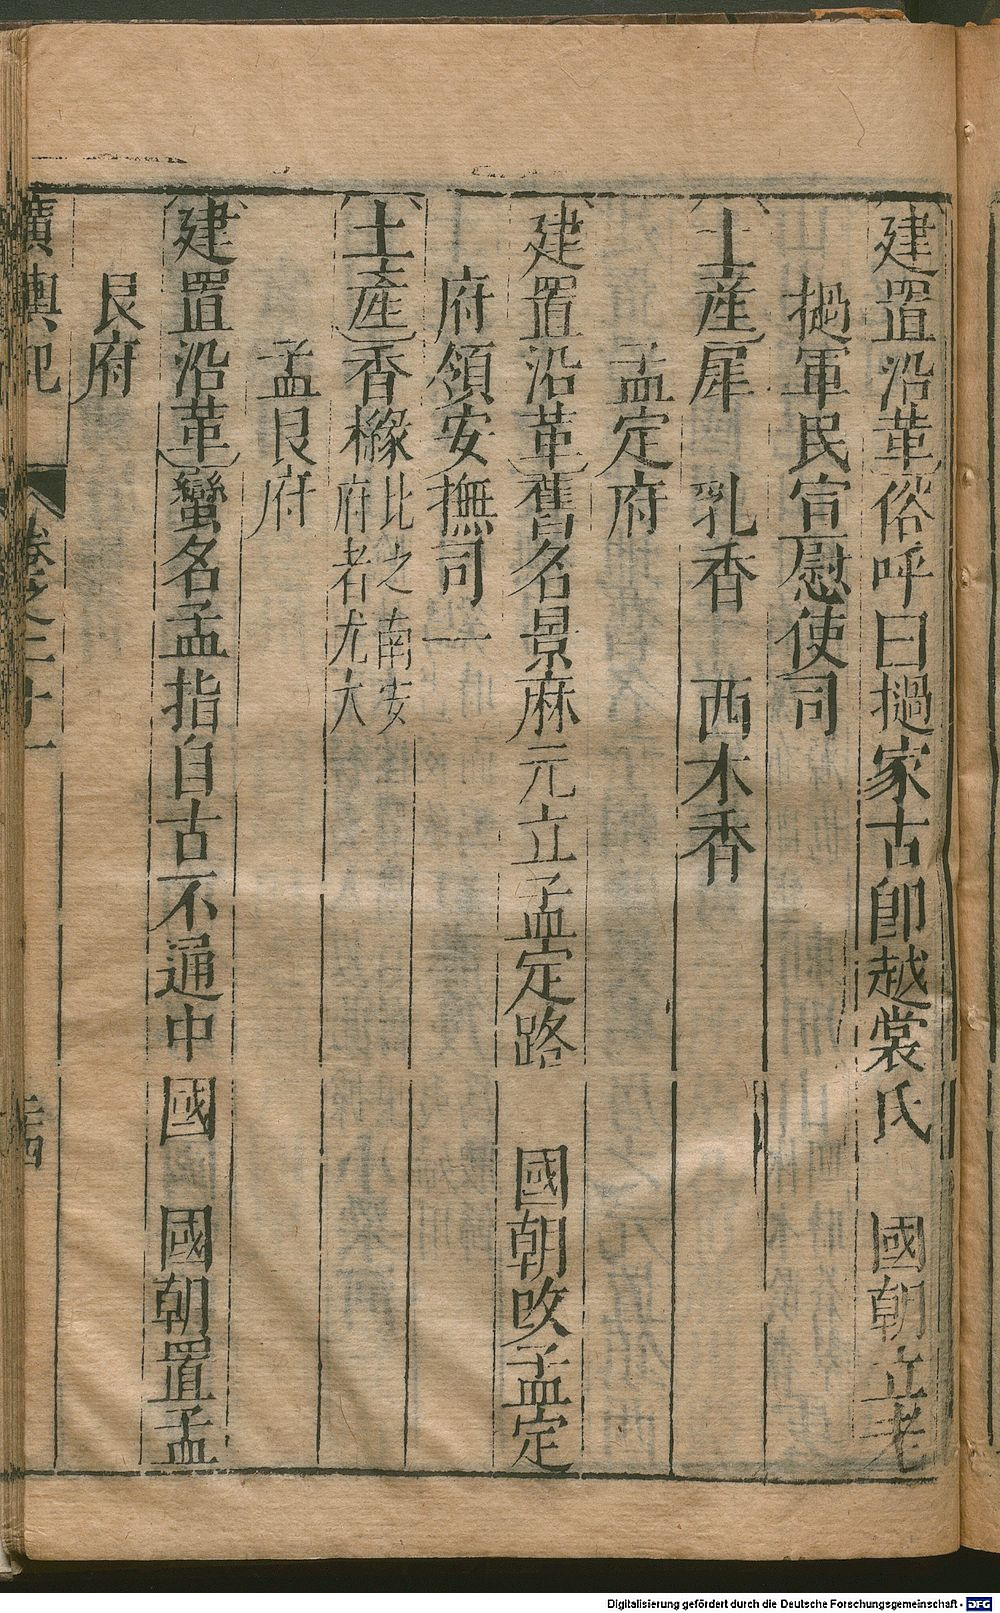 建置沿革俗呼曰撾家古卽越裳氏 國朝立老
撾軍民宣慰使司
土産犀 乳香 西木香
孟定府
建置沿革舊名景麻元立孟定路 國朝改孟定
府領安撫司一
土產香櫞比之南安
府者尤大
孟艮府
建置沿革蠻名孟指自古不通中國 國朝置孟
艮府
廣輿記 卷之二十一 二四
Digitalisierung gefördert durch die Deutsche Forschungsgemeinschaft - DFG